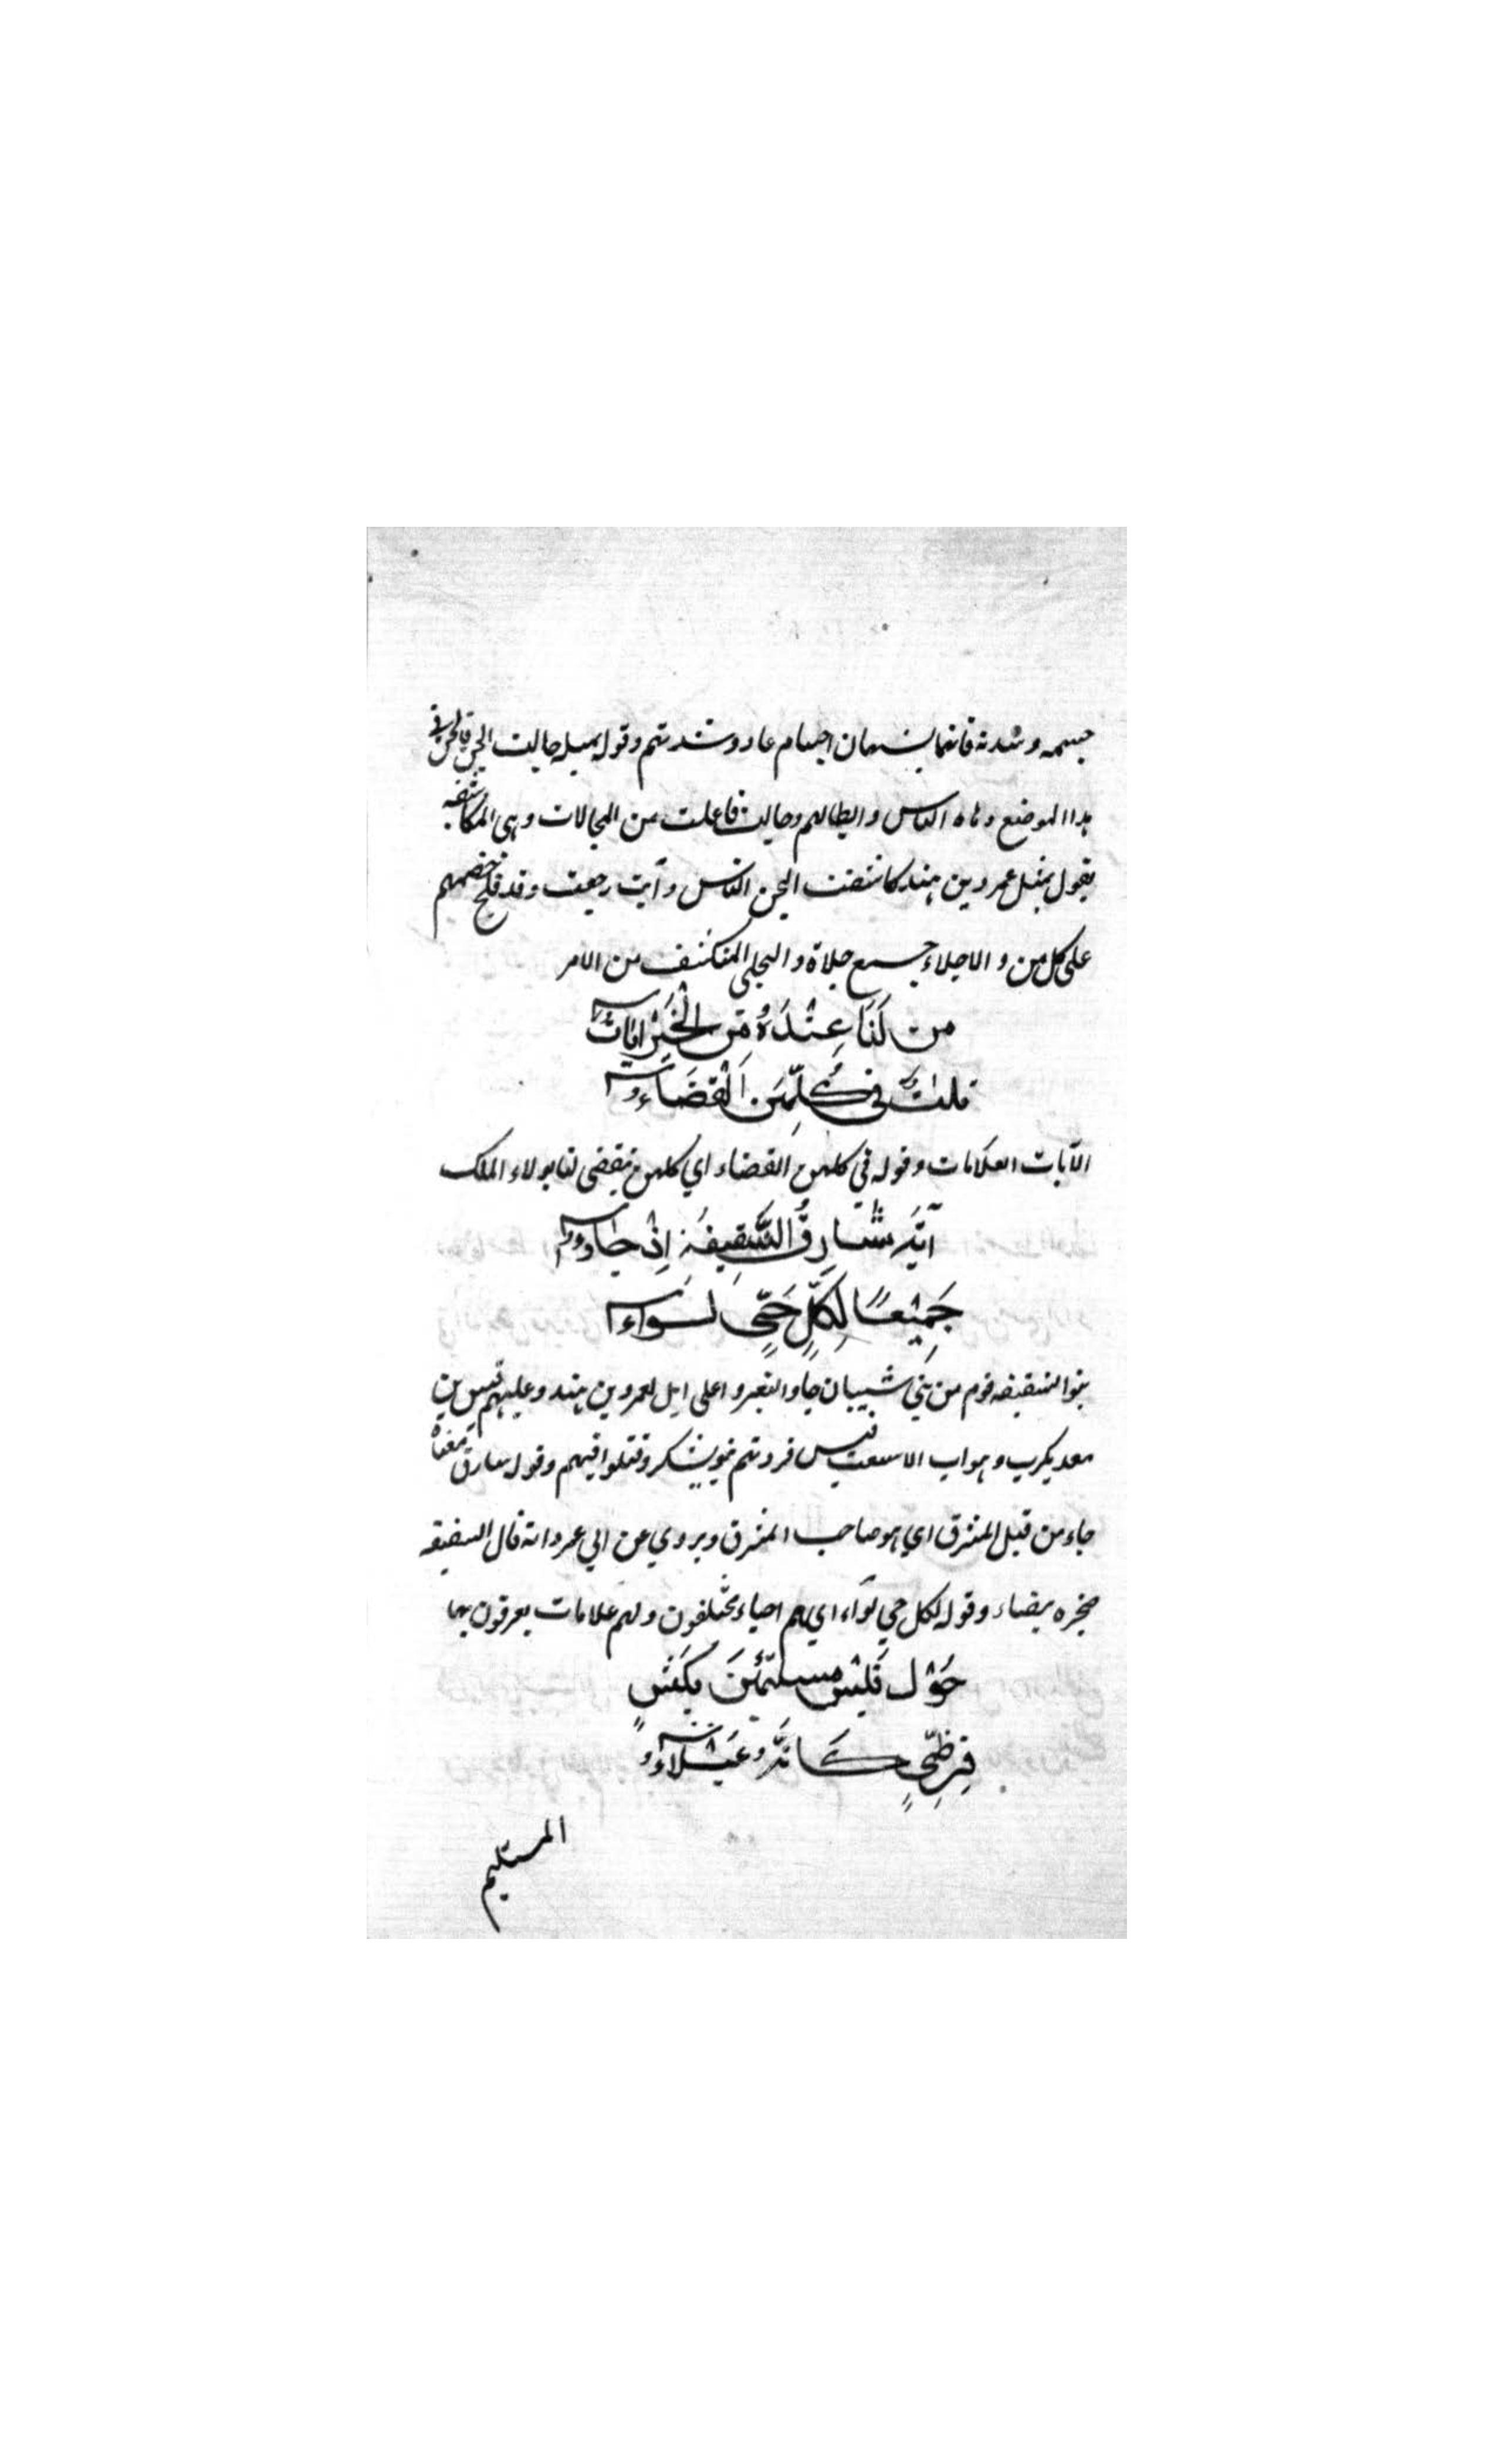 جسمه وشدته فانما يشبهان اجسام عاد وشدتهم وقوله بميله جالت الجن فالجن في
هذا الموضع دهاة الناس وابطالهم وجالت فاعلت من المجالات وهي المكاشفه
يقول بمثل عمرو بن هند كاشفت الجن الناس وآبت رجعت وقد فلج خصمهم
على كل من والاجلاء جميع جلاة والجلي المنكشف من الامر
من لَنَا عِنْدَهُ مِن الْخَيْرِ ايَاتٌ
ثلاثٌ في كُلِّهِنَ الْقَضَاءُ
الآيات العلامات وقوله في كلهن القضاء اي كلهن يقضى لنا بولاء الملك
آيَةٌ شَارِقُ الشَّقِيقَةِ اِذْ جاوا
جَمِيْعًا لِكُلِّ حَيٍّ لِوَاءُ
بنو الشقيقه قوم من بني شيبان جاوا لتغيروا على ابل لعمرو بن هند وعليهم قيس بن
معديكرب وهو اب الاشعث قيس فردتهم بنو يشكر وقتلوا فيهم وقوله شارق معناه
جاء من قبل المشرق اي هو صاحب المشرق ويروي عن ابي عمرو انه قال الشقيقه
صخره بيضاء وقوله لكل حي لواء اي هم احياء مختلفون ولهم علامات يعرفون بها
حَوْل قَيْسٍ مستلئمين بكبشٍ
قرظِيٍّ كَانَّهُ عَبْلاءُ
المستليم